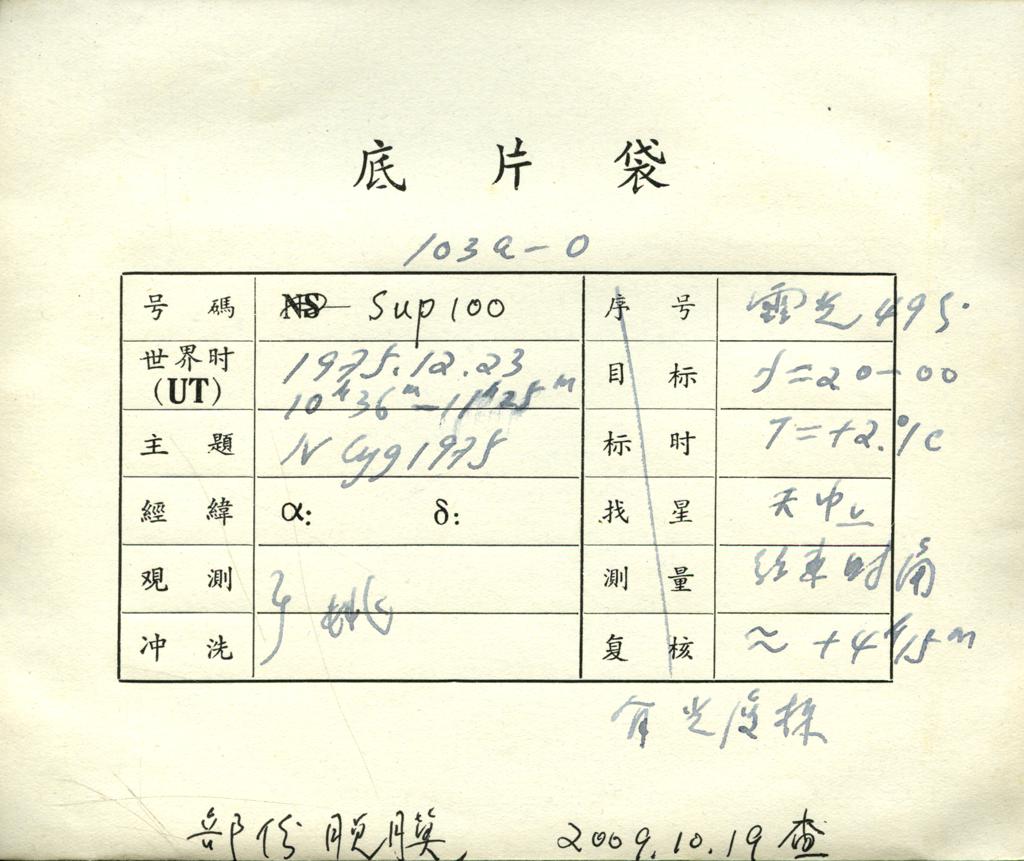 底 片 袋
103a-0
号 碼 NS Sup 100 序 号 露光 495.
世界时 (UT) 1975.12.23 目 标 S=20-00
10h36m-11h25m
主 題 N Cyg 1975 标 时 T=+2.°1c
經 緯 α: δ: 找 星 天中
观 測 測 量 结束时角
冲 洗 姚 复 核 ≈ +4h15m
有光度标
部份脱膜 2009.10.19 查